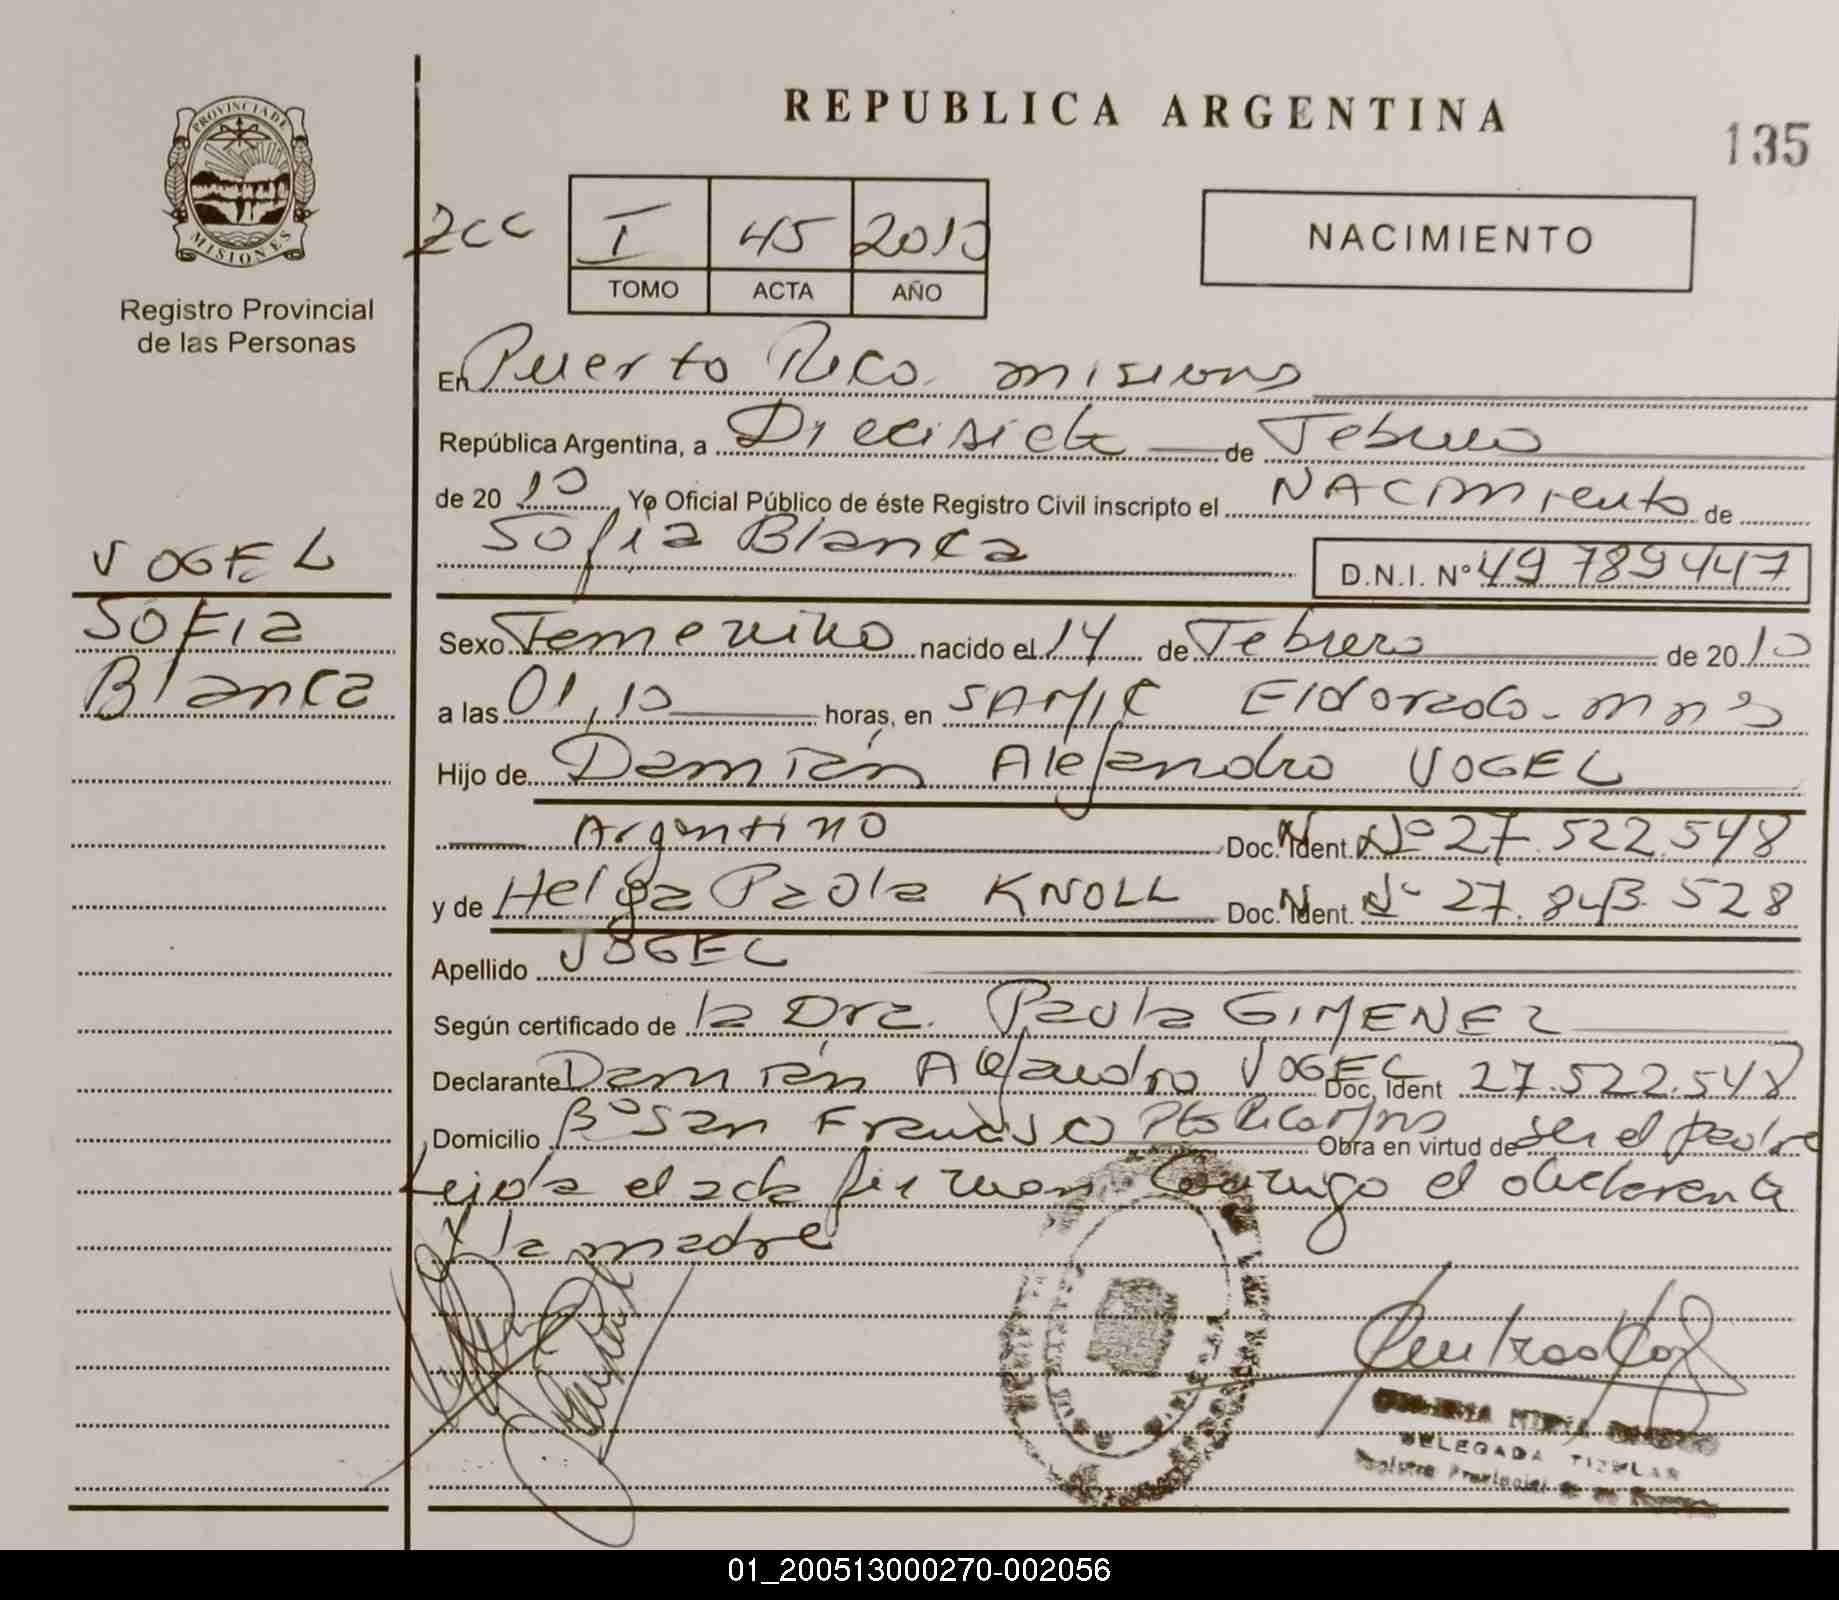 REPUBLICA ARGENTINA
135
PROVINCIA DE
MISIONES
Registro Provincial
de las Personas
I 45 2010
TOMO ACTA AÑO
NACIMIENTO
En Puerto Rico misiones
República Argentina, a Diecisiete de Febrero
de 20 10 Yo Oficial Público de éste Registro Civil inscripto el NACimiento de
Sofia Blanca D.N.I. N° 49 789 447
VOGEL
SOFIa
Blanca
Sexo Femenino nacido el 14 de Febrero de 20 10
a las 01,10 horas, en SAMIC Eldorado - mnes
Hijo de Damián Alejandro VOGEL
Argentino Doc. Ident. N° 27.522.548
y de Helga Paola KNOLL Doc. Ident. N° 27.843.528
Apellido VOGEL
Según certificado de la Dra. Paula GIMENEZ
Declarante Damián Alejandro VOGEL Doc. Ident 27.522.548
Domicilio B° San Francisco Pto Rico Mns Obra en virtud de ser el padre
Leída el acta firman conmigo el declarante
y la madre
DELEGADA TITULAR
Registro Provincial de las Personas
01_200513000270-002056